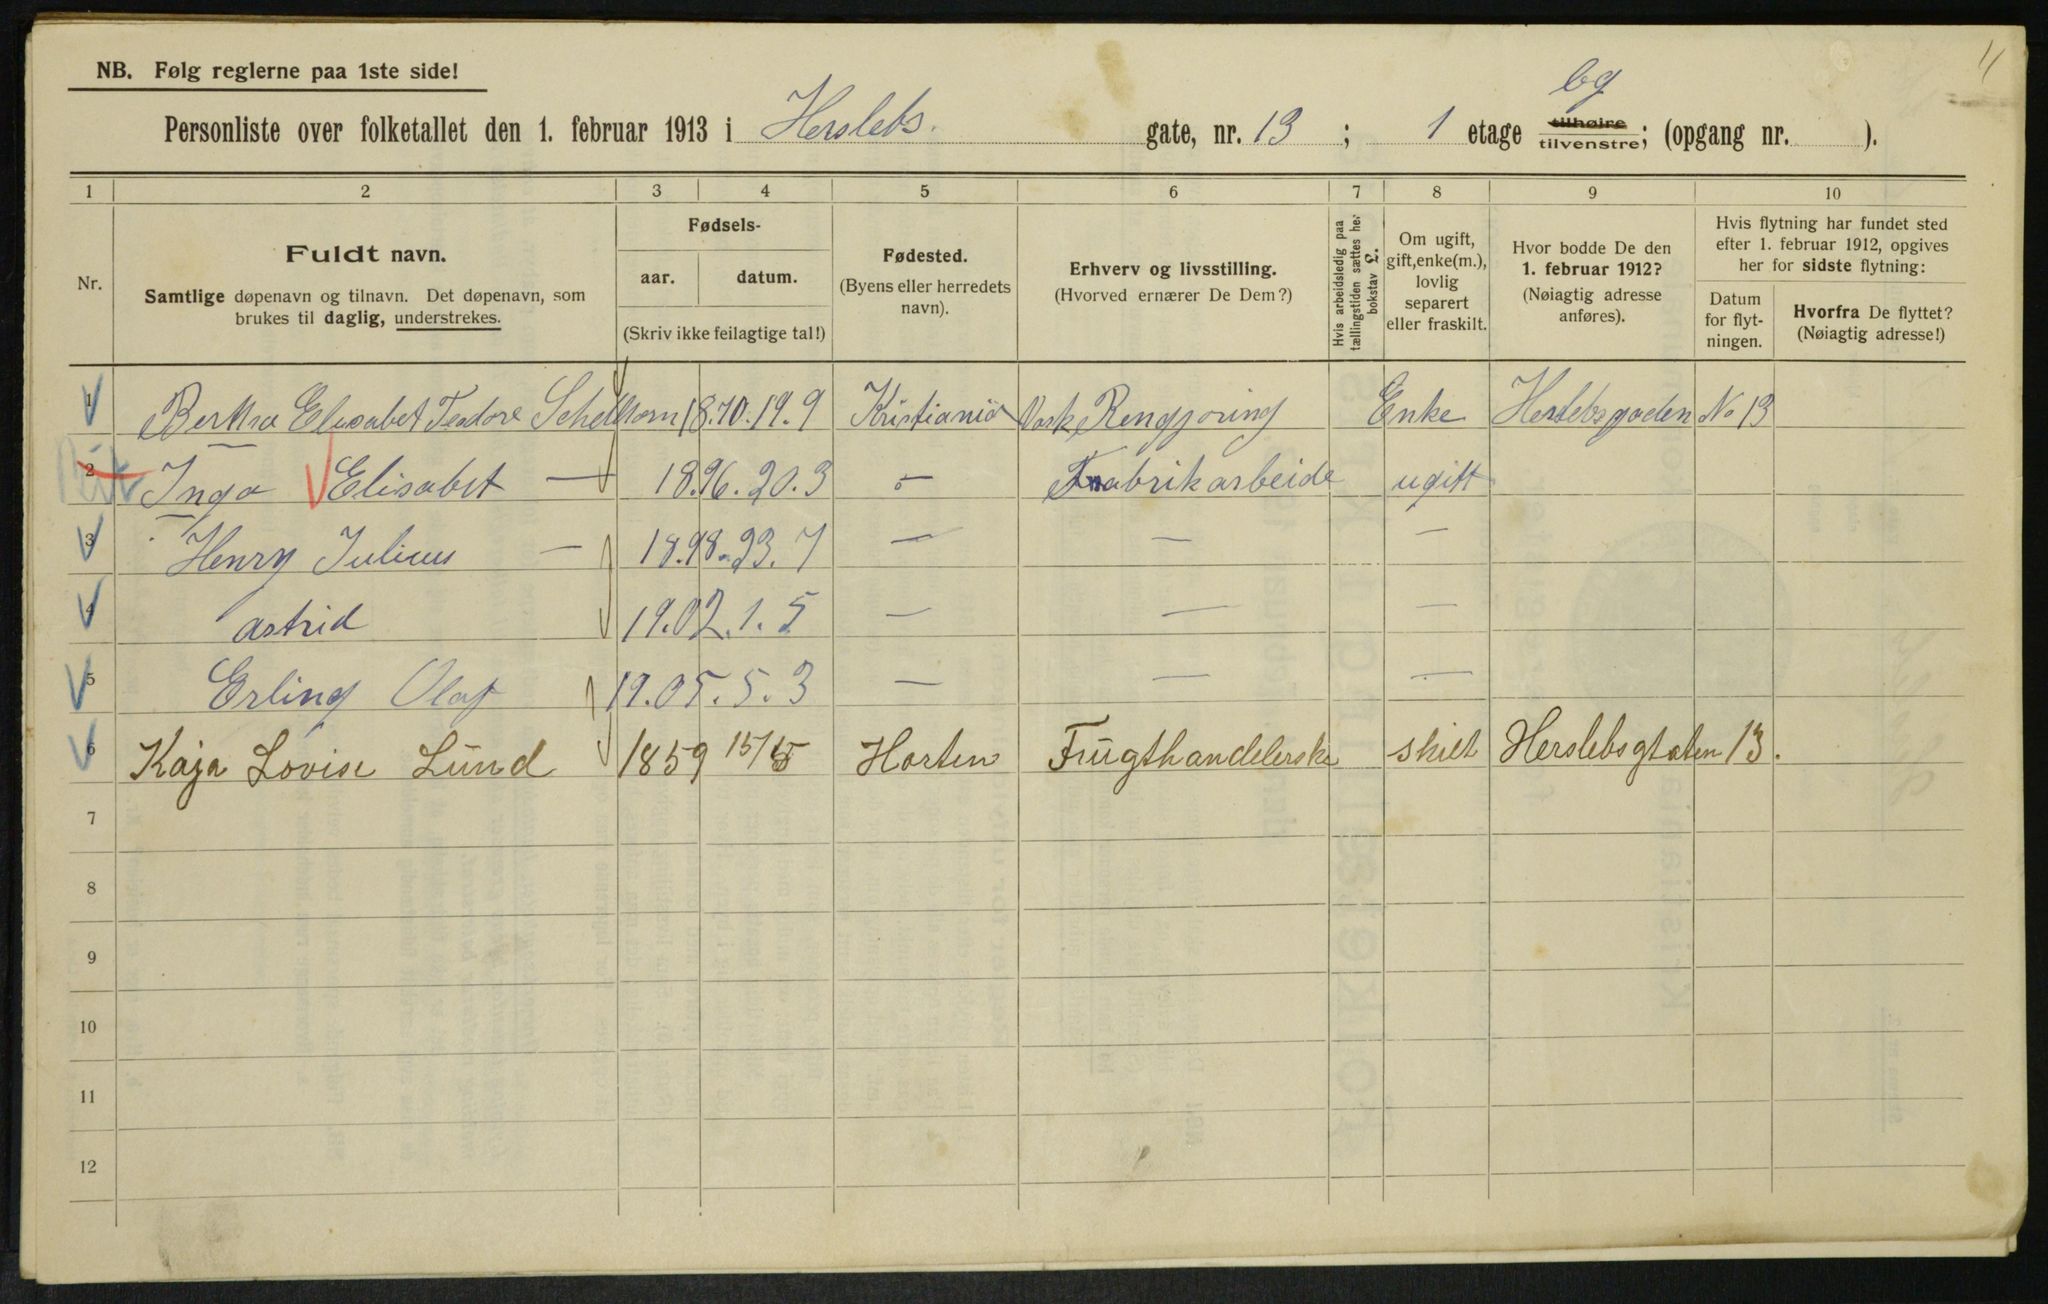 4
NB. Følg reglerne paa 1ste side!
bg
Personliste over folketallet den 1. februar 1913 i Herslebs. gate, nr. 13 ; 1 etage tilhøire tilvenstre; (opgang nr. ).
1 2 3 4 5 6 7 8 9 10
Nr.
Fuldt navn.
Samtlige døpenavn og tilnavn. Det døpenavn, som
brukes til daglig, understrekes.
Fødsels-
aar. datum.
(Skriv ikke feilagtige tal!)
Fødested.
(Byens eller herredets
navn).
Erhverv og livsstilling.
(Hvorved ernærer De Dem?)
Hvis arbeidsledig paa
tællingstiden sættes her
bokstav L.
Om ugift,
gift, enke(m.),
lovlig
separert
eller fraskilt.
Hvor bodde De den
1. februar 1912?
(Nøiagtig adresse
anføres).
Hvis flytning har fundet sted
efter 1. februar 1912, opgives
her for sidste flytning:
Datum
for flyt-
ningen.
Hvorfra De flyttet?
(Nøiagtig adresse!)
1 Bertha Elisabet Teodore Schelhorn 18.70. 19. 9 Kristiania Vask Rengjoring Enke Herslebsgaden No 13
2 Inga Elisabet — 18.96. 20. 3 — Fabrikarbeide ugift
3 Henry Julius — 18.98. 23. 7 — — —
4 astrid 19.02. 1. 5 — — —
5 Erling Olaf 19.05. 5. 3 — — —
6 Kaja Lovise Lund 1859 15/5 Horten Frugthandelerske skilt Herslebsgtaten 13.
7
8
9
10
11
12